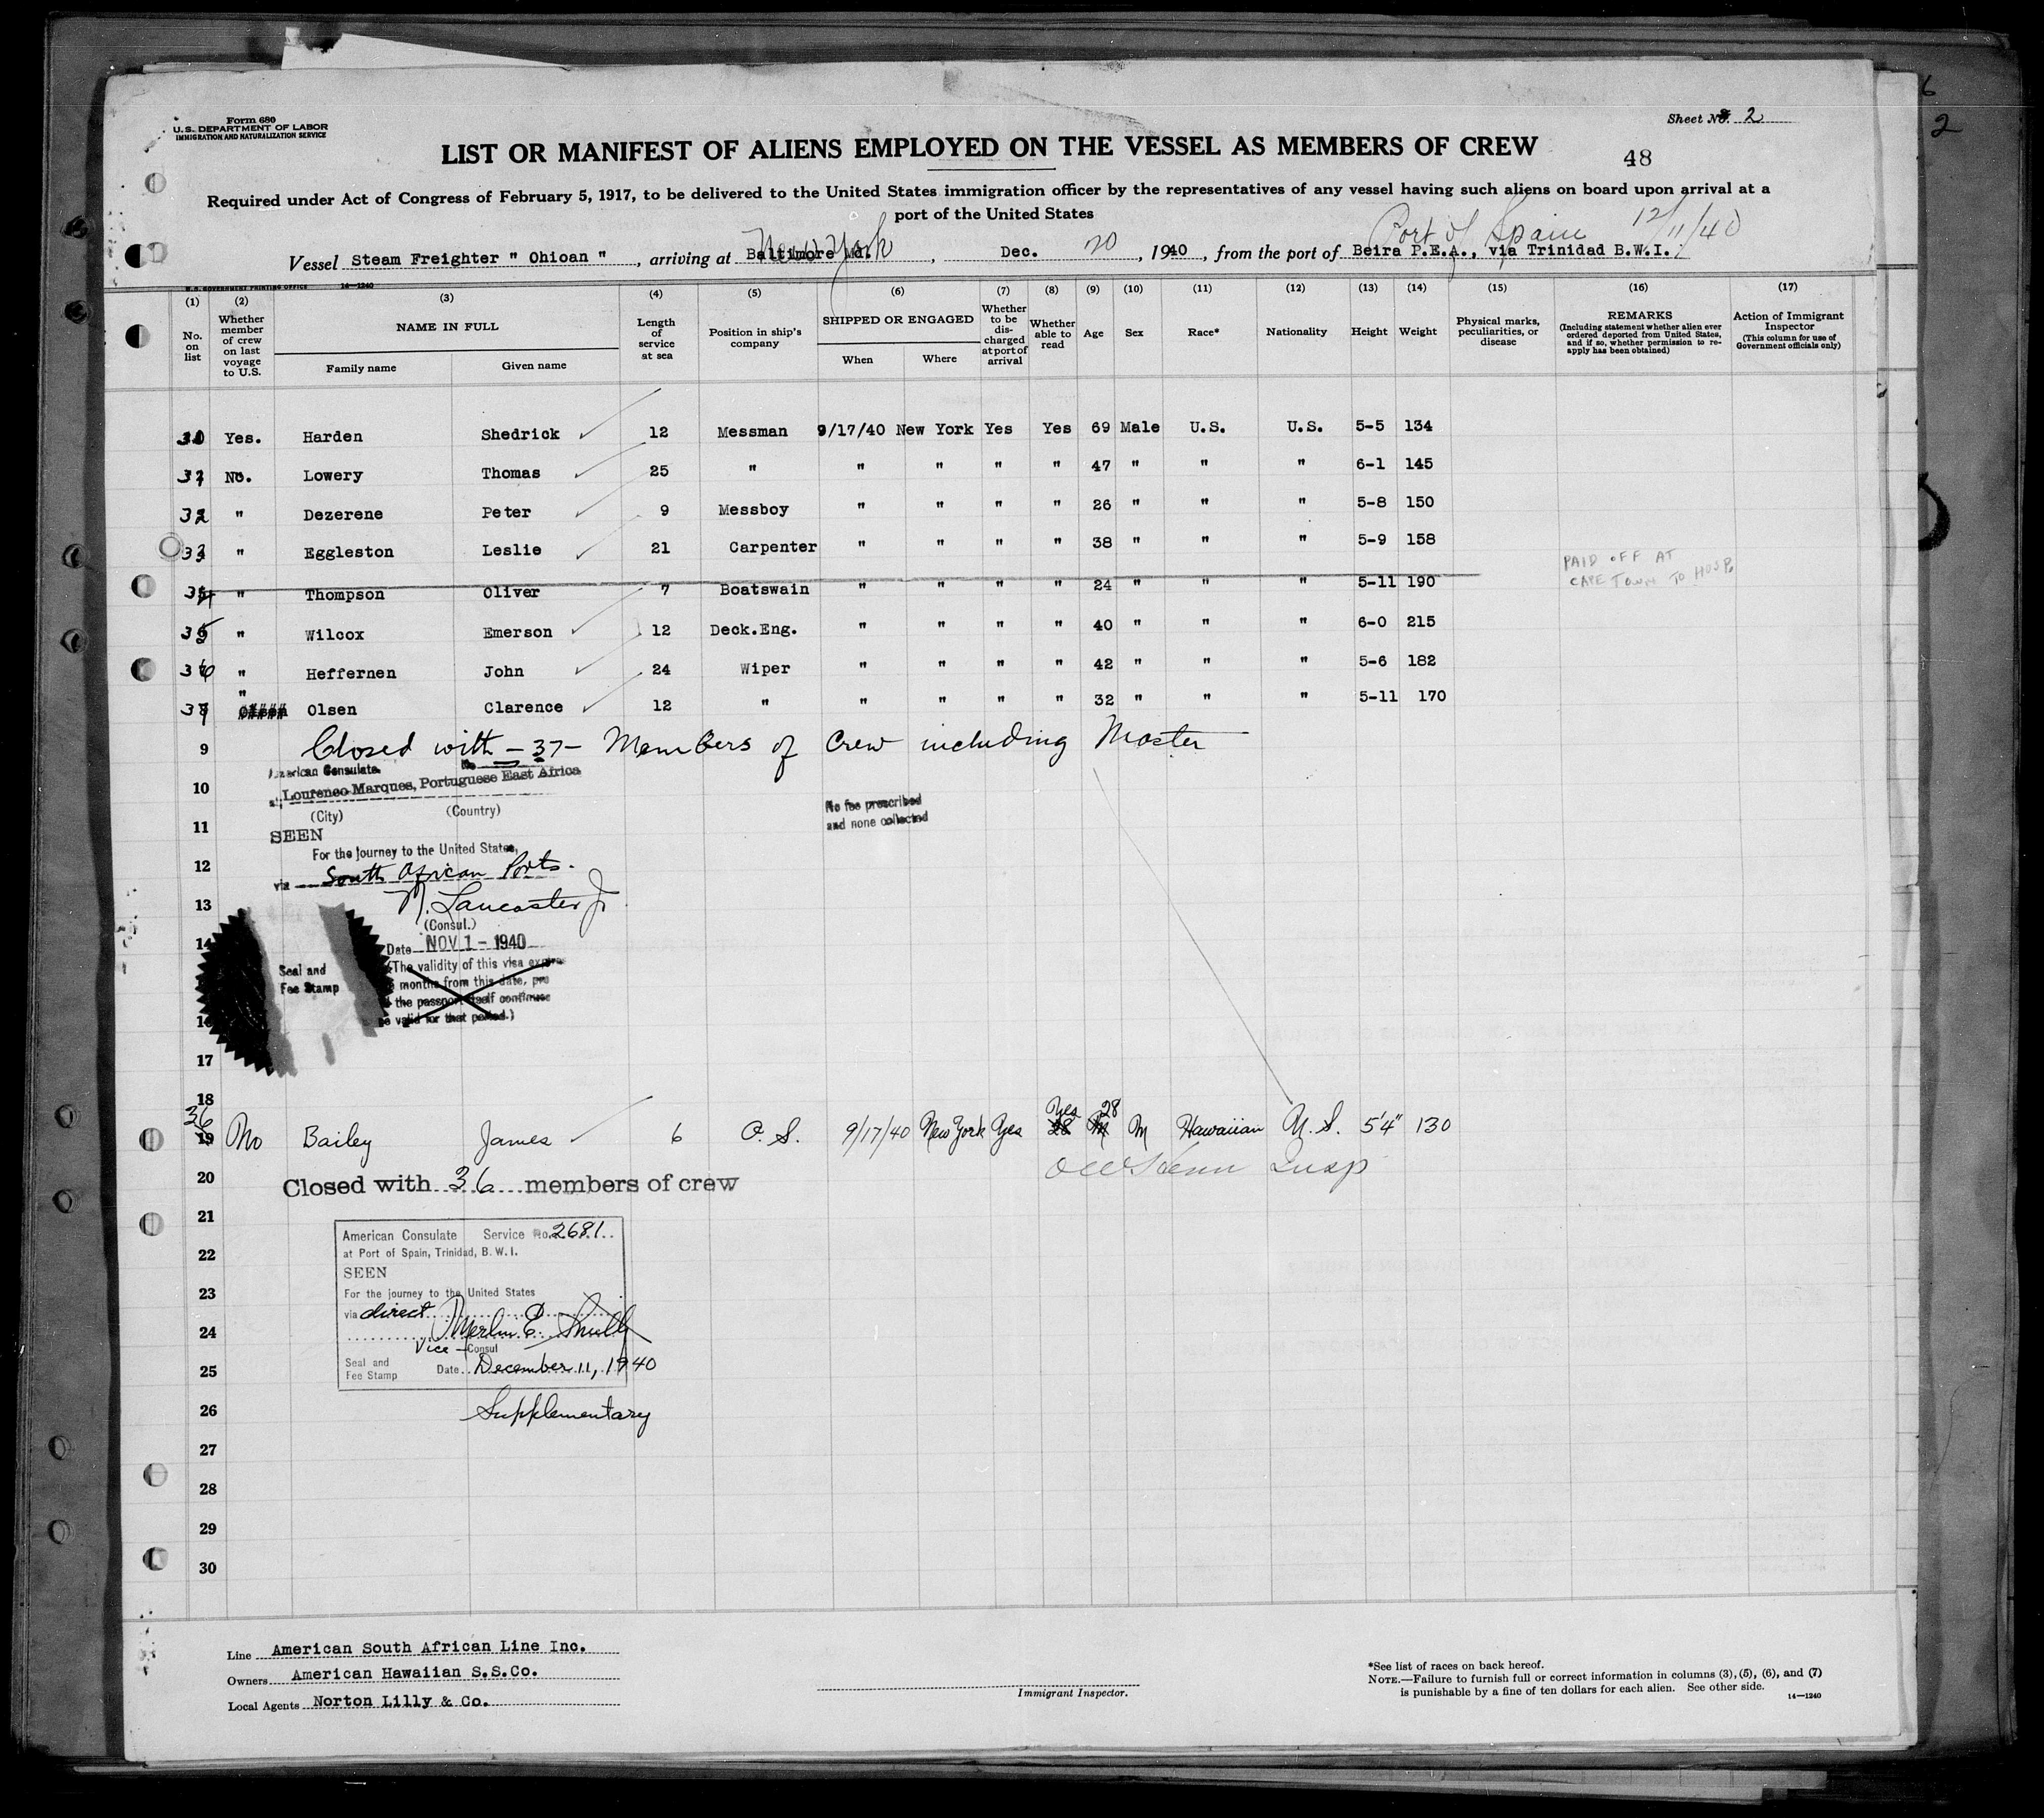 Form 680
U.S. DEPARTMENT OF LABOR
IMMIGRATION AND NATURALIZATION SERVICE
Sheet No. 2
6
2
LIST OR MANIFEST OF ALIENS EMPLOYED ON THE VESSEL AS MEMBERS OF CREW
48
Required under Act of Congress of February 5, 1917, to be delivered to the United States immigration officer by the representatives of any vessel having such aliens on board upon arrival at a
port of the United States
New York Port of Spain 12/11/40
Vessel Steam Freighter " Ohioan " , arriving at Baltimore Md. , Dec. 20 , 1940 , from the port of Beira P.E.A., via Trinidad B.W.I.
U.S. GOVERNMENT PRINTING OFFICE 14—1240
(1) (2) (3) (4) (5) (6) (7) (8) (9) (10) (11) (12) (13) (14) (15) (16) (17)
No. on list
Whether member of crew on last voyage to U.S.
NAME IN FULL
Family name Given name
Length of service at sea
Position in ship's company
SHIPPED OR ENGAGED
When Where
Whether to be discharged at port of arrival
Whether able to read
Age
Sex
Race*
Nationality
Height
Weight
Physical marks, peculiarities, or disease
REMARKS
(Including statement whether alien ever ordered deported from United States, and if so, whether permission to reapply has been obtained)
Action of Immigrant Inspector
(This column for use of Government officials only)
30 Yes. Harden Shedrick 12 Messman 9/17/40 New York Yes Yes 69 Male U.S. U.S. 5-5 134
31 No. Lowery Thomas 25 " " " " " 47 " " " 6-1 145
32 " Dezerene Peter 9 Messboy " " " " 26 " " " 5-8 150
33 " Eggleston Leslie 21 Carpenter " " " " 38 " " " 5-9 158
34 " Thompson Oliver 7 Boatswain " " " " 24 " " " 5-11 190 PAID OFF AT CAPE TOWN TO HOSP.
35 " Wilcox Emerson 12 Deck.Eng. " " " " 40 " " " 6-0 215
36 " Heffernen John 24 Wiper " " " " 42 " " " 5-6 182
37 " Olsen Clarence 12 " " " " " 32 " " " 5-11 170
9 Closed with - 37 - Members of Crew including Master
American Consulate No
10 at Lourenco Marques, Portuguese East Africa
(City) (Country)
No fee prescribed
and none collected
11 SEEN
For the journey to the United States,
12 via South African Ports.
13 N. Lancaster Jr
(Consul.)
14 Date NOV 1 - 1940
Seal and
Fee Stamp
(The validity of this visa expires
months from this date, pro
the passport itself continues
16 be valid for that period.)
17
18
36 19 No Bailey James 6 O. S. 9/17/40 New York Yes Yes 28 M Hawaiian U.S. 5'4" 130
Insp
20 Closed with 36 members of crew
21
American Consulate Service No. 2681
22 at Port of Spain, Trinidad, B. W. I.
SEEN
23 For the journey to the United States
via direct
24 Merlin E. Smith
Vice - Consul
25 Seal and Fee Stamp Date December 11, 1940
26 Supplementary
27
28
29
30
Line American South African Line Inc.
Owners American Hawaiian S.S.Co.
Local Agents Norton Lilly & Co.
Immigrant Inspector.
*See list of races on back hereof.
NOTE.—Failure to furnish full or correct information in columns (3), (5), (6), and (7)
is punishable by a fine of ten dollars for each alien. See other side.
14—1240